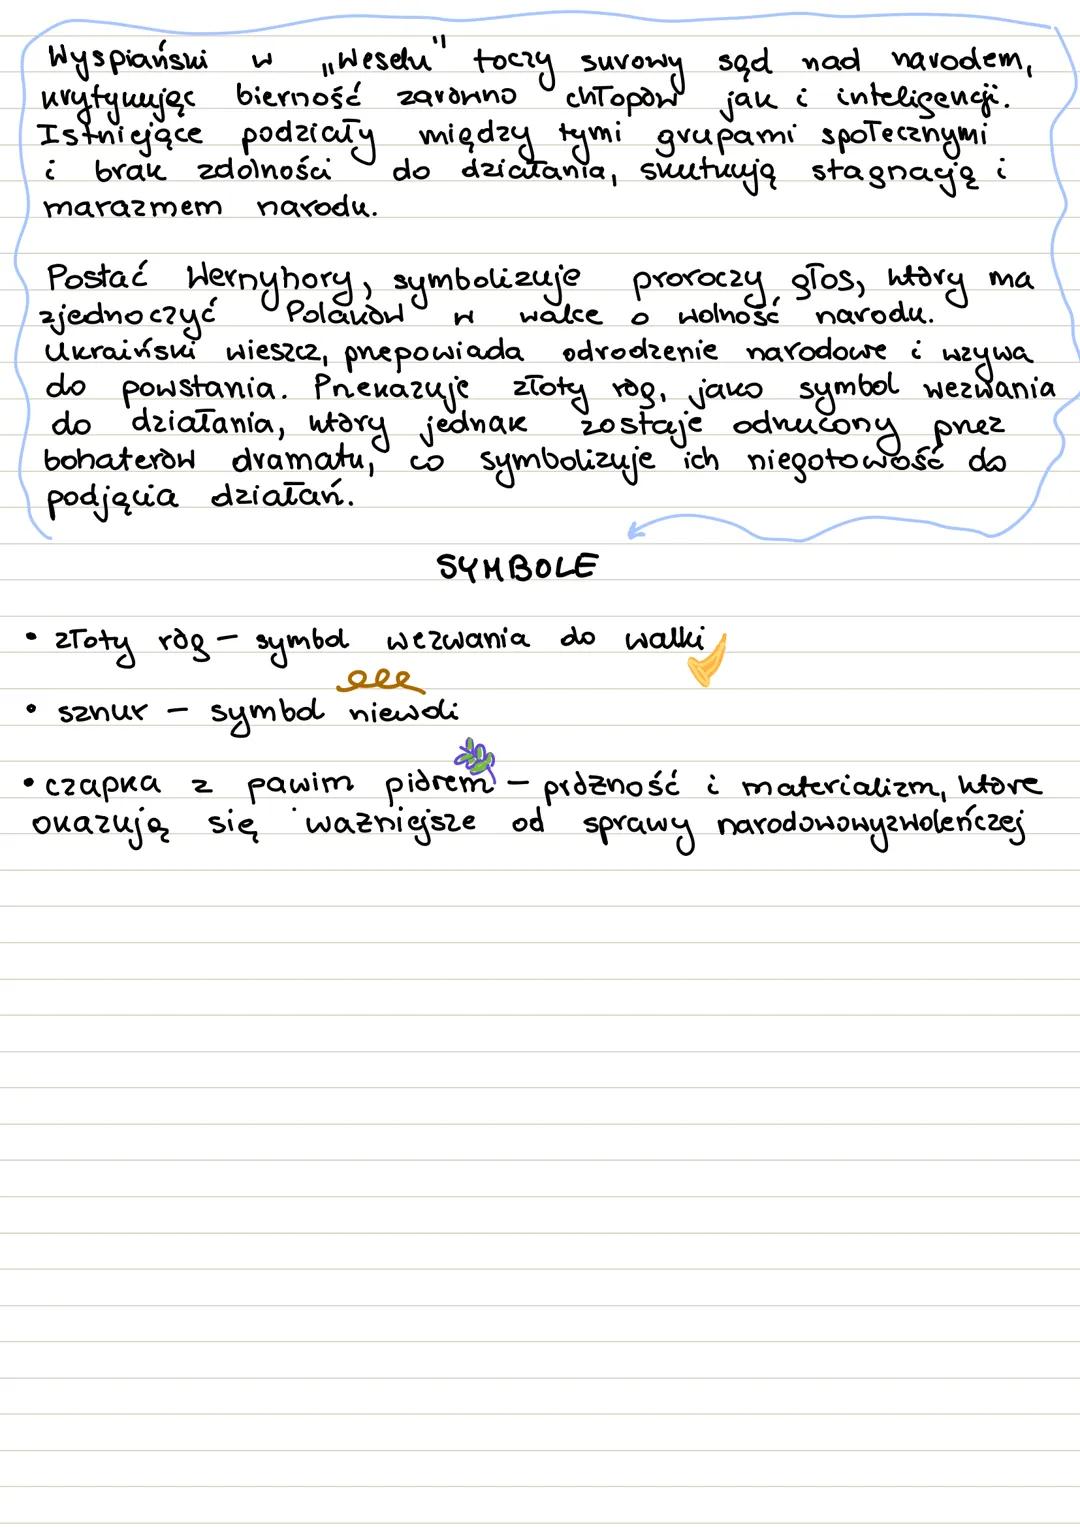 Wyspiański w „Weselu" toczy surowy sąd nad narodem,
krytykując bierność zarówno chłopów jak i inteligencji.
Istniejące podziały między tymi grupami społecznymi
i brak zdolności do działania, skutkują stagnacją i
marazmem narodu.
Postać Wernyhory, symbolizuje proroczy głos, który ma
zjednoczyć Polaków w walce o wolność narodu.
Ukraiński wieszcz, przepowiada odrodzenie narodowe i wzywa
do powstania. Przekazuje złoty róg, jako symbol wezwania
do działania, który jednak zostaje odrzucony przez
bohaterów dramatu, co symbolizuje ich niegotowość do
podjęcia działań.
SYMBOLE
• złoty róg – symbol wezwania do walki
• sznur – symbol niewoli
• czapka z pawim piórem – próżność i materializm, które
okazują się ważniejsze od sprawy narodowowyzwoleńczej